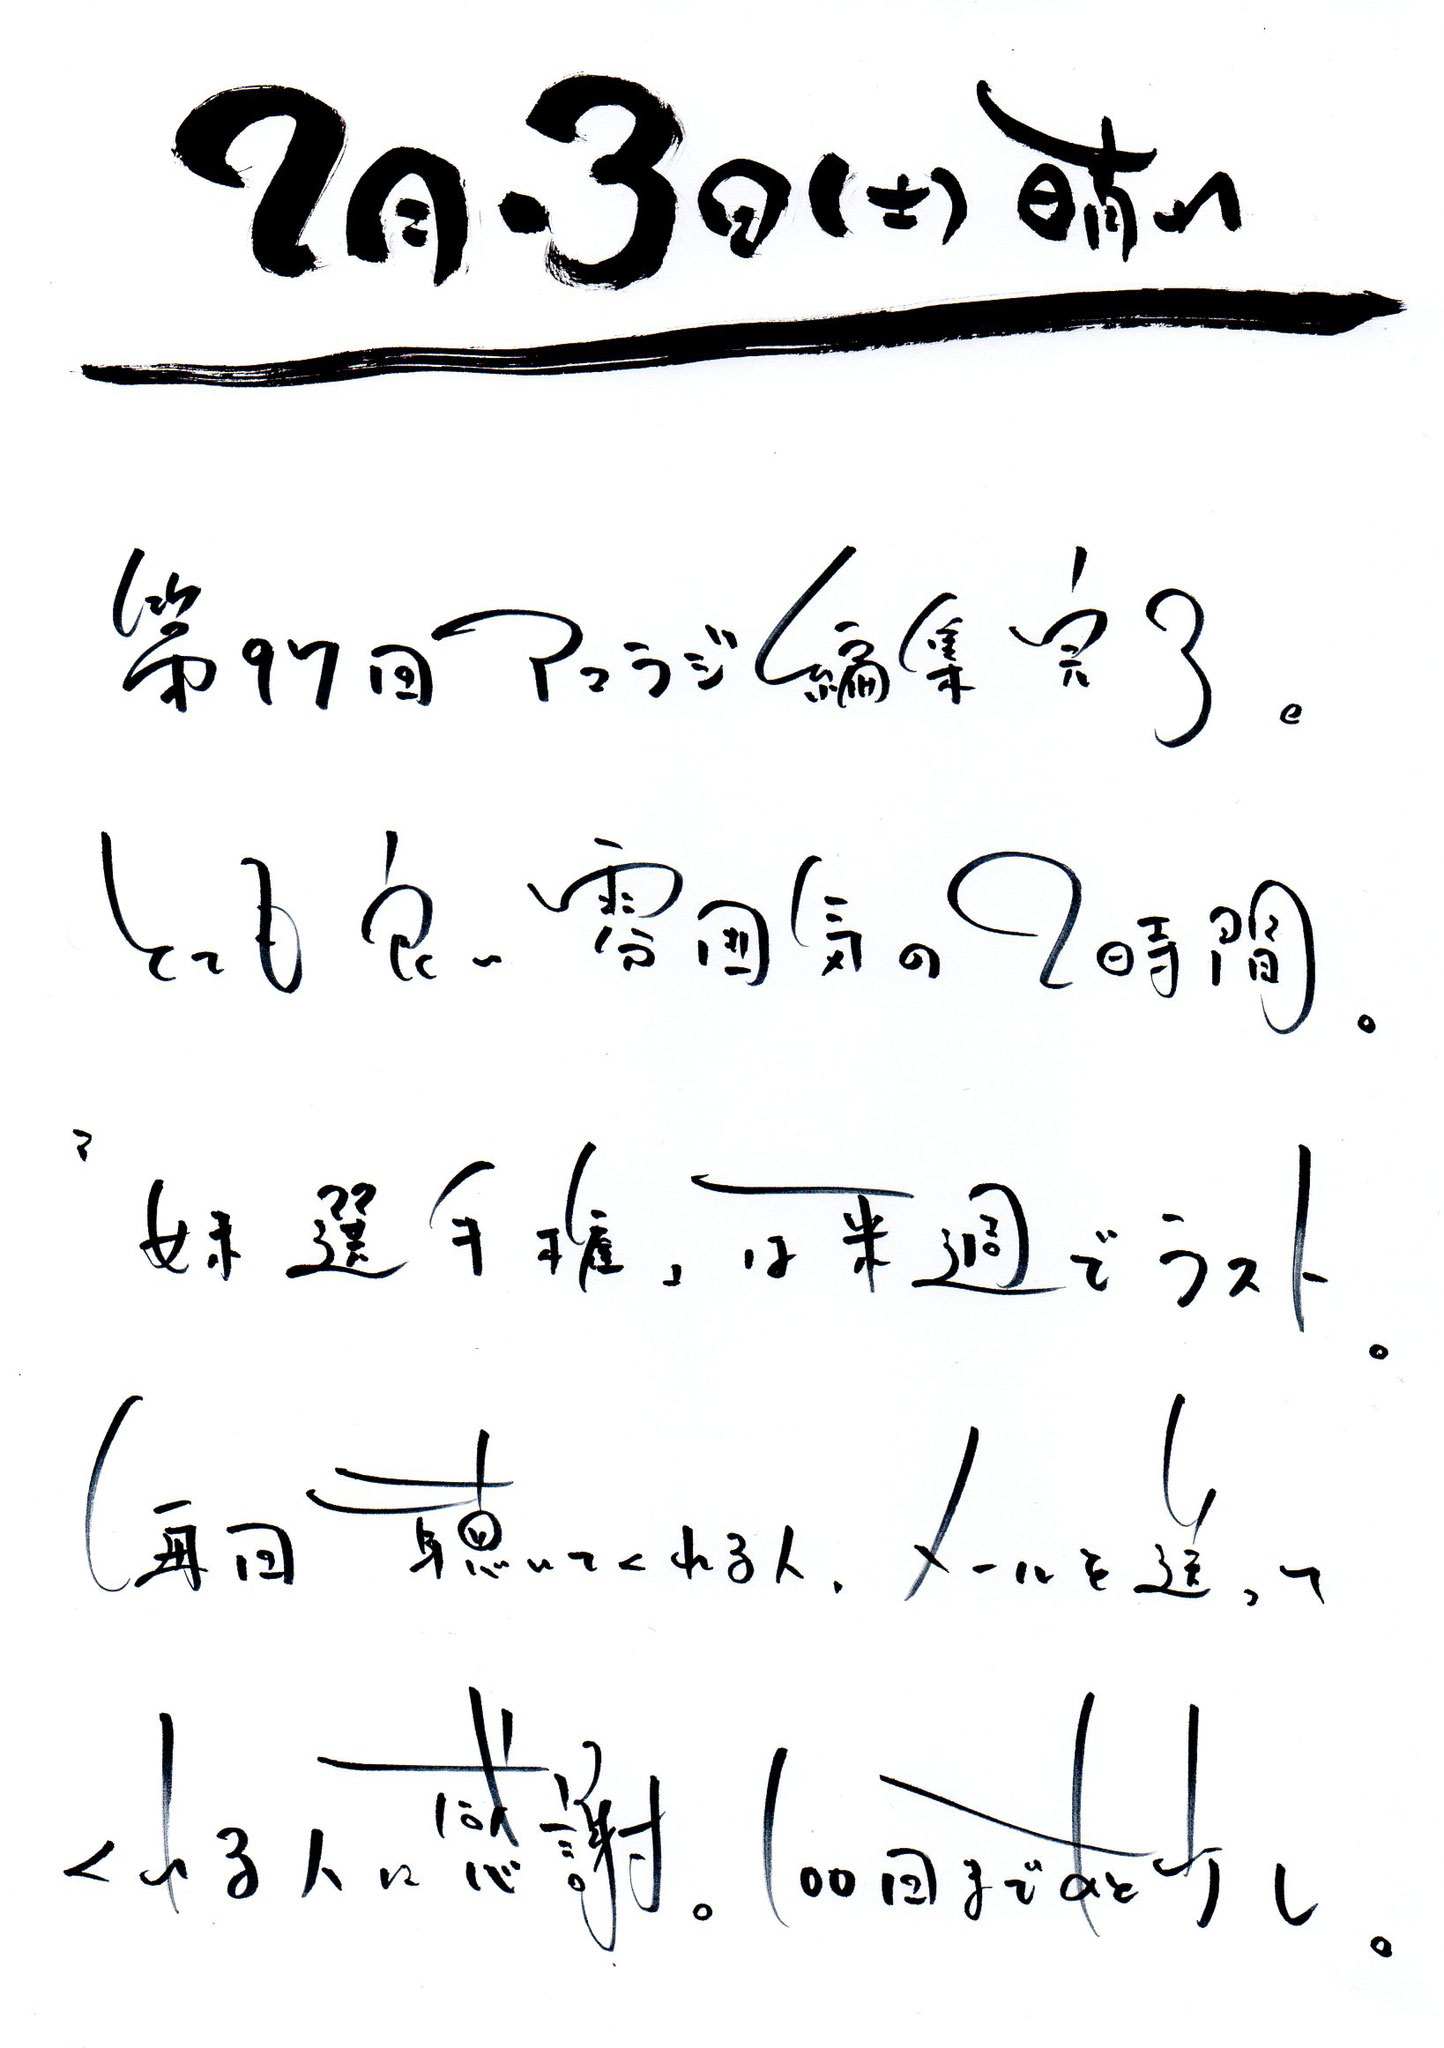 2月・3日(土) 晴れ
第97回アコラジ編集完了。
とても良い雰囲気の2時間。
「妹選手権」は来週でラスト。
毎回聴いてくれる人、メールを送って
くれる人に感謝。100回まであと少し。